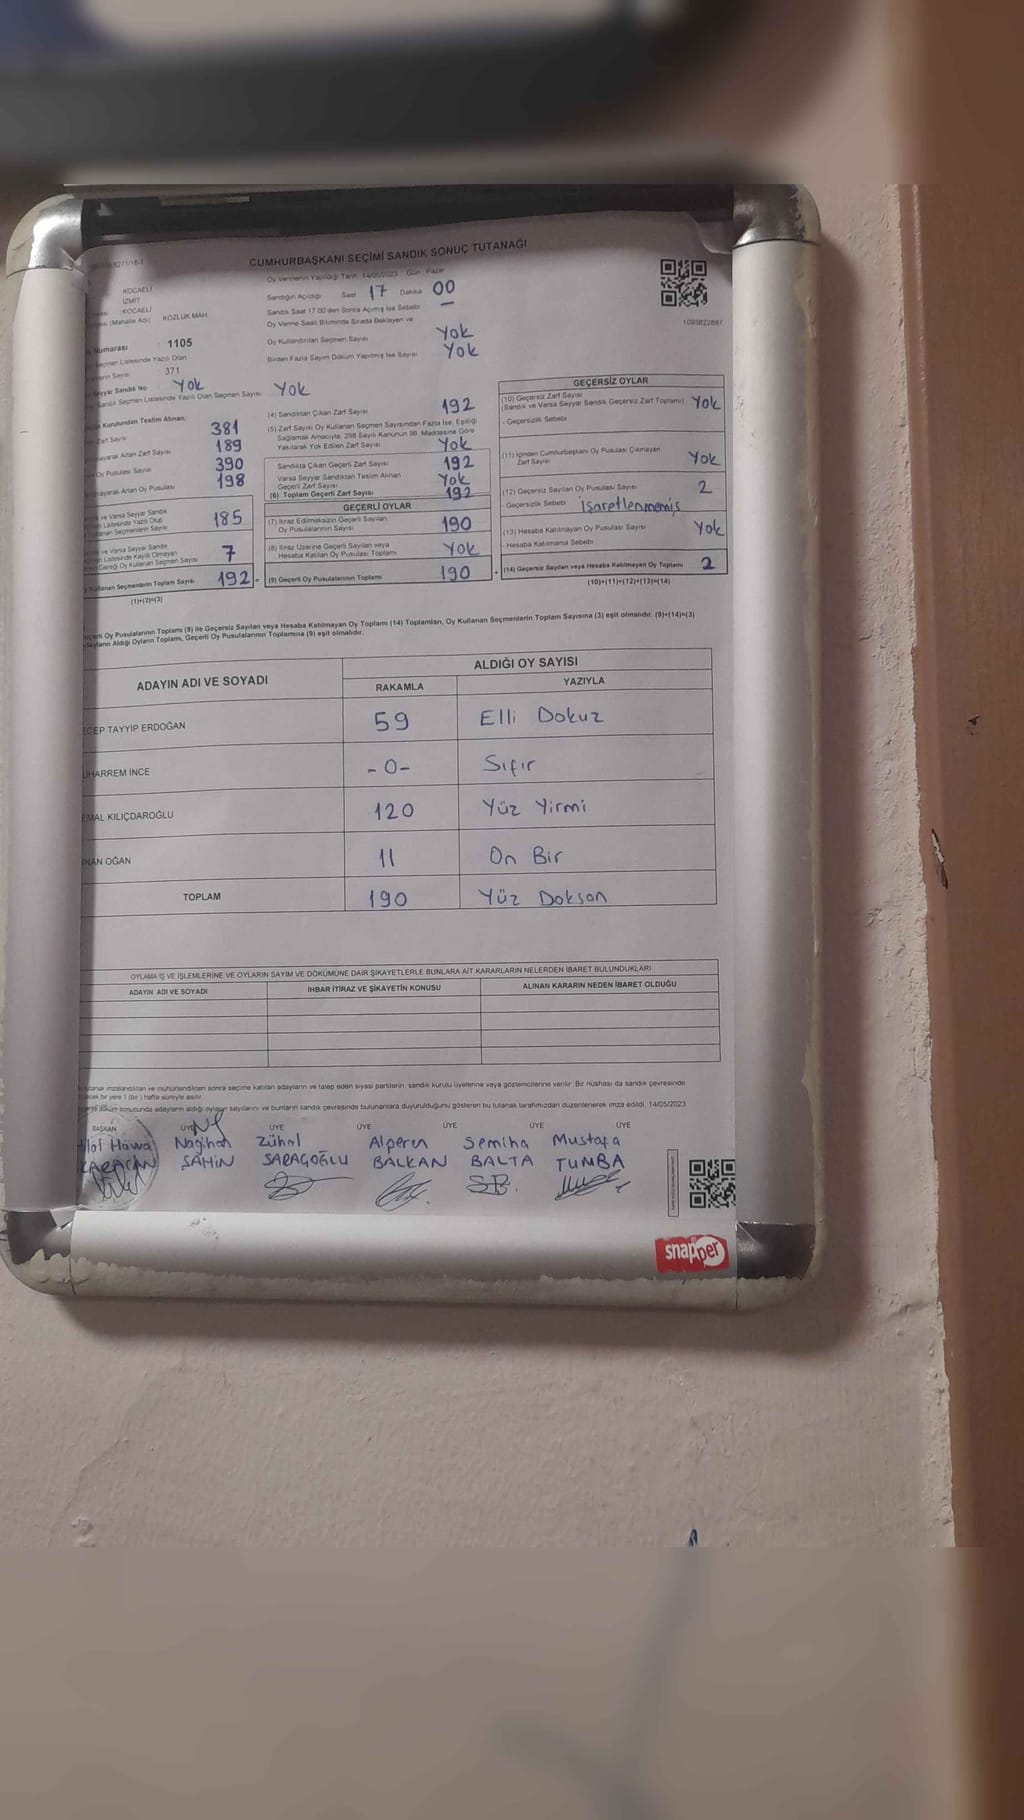 CUMHURBAŞKANI SEÇİMİ SANDIK SONUÇ TUTANAĞI
Oy Vermenin Yapıldığı Tarih 14/05/2023 Gün Pazar
KOCAELİ
İZMİT
KOCAELİ
(Mahalle Adı) KOZLUK MAH.
Numarası 1105
Seçmen Listesinde Yazılı Olan
Sayısı 371
Seyyar Sandık No Yok
Sandık Seçmen Listesinde Yazılı Olan Seçmen Sayısı Yok
Sandığın Açıldığı Saat 17 Dakika 00
Sandık Saat 17:00'den Sonra Açılmış İse Sebebi —
Oy Verme Saati Bitiminde Sırada Bekleyen ve
Oy Kullandırılan Seçmen Sayısı Yok
Birden Fazla Sayım Döküm Yapılmış İse Sayısı Yok
1093822697
Kurulundan Teslim Alınan;
Zarf Sayısı 381
Artan Zarf Sayısı 189
Oy Pusulası Sayısı 390
Artan Oy Pusulası 198
ve Varsa Seyyar Sandık
Listesinde Yazılı Olup
Kullanan Seçmenlerin Sayısı 185
ve Varsa Seyyar Sandık
Listesinde Kayıtlı Olmayan
Gereği Oy Kullanan Seçmen Sayısı 7
Kullanan Seçmenlerin Toplam Sayısı 192
(1)+(2)=(3)
(4) Sandıktan Çıkan Zarf Sayısı 192
(5) Zarf Sayısı Oy Kullanan Seçmen Sayısından Fazla İse, Eşitliği
Sağlamak Amacıyla; 298 Sayılı Kanunun 98. Maddesine Göre
Yakılarak Yok Edilen Zarf Sayısı Yok
Sandıkta Çıkan Geçerli Zarf Sayısı 192
Varsa Seyyar Sandıktan Teslim Alınan
Geçerli Zarf Sayısı Yok
(6) Toplam Geçerli Zarf Sayısı 192
GEÇERLİ OYLAR
(7) İtiraz Edilmeksizin Geçerli Sayılan
Oy Pusulalarının Sayısı 190
(8) İtiraz Üzerine Geçerli Sayılan veya
Hesaba Katılan Oy Pusulası Toplamı Yok
(9) Geçerli Oy Pusulalarının Toplamı 190
GEÇERSİZ OYLAR
(10) Geçersiz Zarf Sayısı
(Sandık ve Varsa Seyyar Sandık Geçersiz Zarf Toplamı) Yok
Geçersizlik Sebebi
(11) İçinden Cumhurbaşkanı Oy Pusulası Çıkmayan
Zarf Sayısı Yok
(12) Geçersiz Sayılan Oy Pusulası Sayısı 2
Geçersizlik Sebebi İşaretlenmemiş
(13) Hesaba Katılmayan Oy Pusulası Sayısı Yok
Hesaba Katılmama Sebebi
(14) Geçersiz Sayılan veya Hesaba Katılmayan Oy Toplamı 2
(10)+(11)+(12)+(13)=(14)
Oy Pusulalarının Toplamı (9) ile Geçersiz Sayılan veya Hesaba Katılmayan Oy Toplamı (14) Toplamları, Oy Kullanan Seçmenlerin Toplam Sayısına (3) eşit olmalıdır. (9)+(14)=(3)
Aldığı Oyların Toplamı, Geçerli Oy Pusulalarının Toplamına (9) eşit olmalıdır.
ADAYIN ADI VE SOYADI ALDIĞI OY SAYISI
RAKAMLA YAZIYLA
TAYYİP ERDOĞAN 59 Elli Dokuz
İNCE -0- Sıfır
KILIÇDAROĞLU 120 Yüz Yirmi
OĞAN 11 On Bir
TOPLAM 190 Yüz Doksan
OYLAMA İŞ VE İŞLEMLERİNE VE OYLARIN SAYIM VE DÖKÜMÜNE DAİR ŞİKAYETLERLE BUNLARA AİT KARARLARIN NELERDEN İBARET BULUNDUKLARI
ADAYIN ADI VE SOYADI İHBAR İTİRAZ VE ŞİKAYETİN KONUSU ALINAN KARARIN NEDEN İBARET OLDUĞU
imzalandıktan ve mühürlendikten sonra seçime katılan adayların ve talep eden siyasi partilerin sandık kurulu üyelerine veya gözlemcilerine verilir. Bir nüshası da sandık çevresinde
bir yere 1 (bir) hafta süreyle asılır.
döküm sonucunda adayların aldığı oyların sayılarını ve bunların sandık çevresinde bulunanlara duyurulduğunu gösteren bu tutanak tarafımızdan düzenlenerek imza edildi. 14/05/2023
BAŞKAN ÜYE ÜYE ÜYE ÜYE ÜYE ÜYE
Nagihan Zühal Alperen Semiha Mustafa
ŞAHİN SARAÇOĞLU BALKAN BALTA TUMBA
snapper